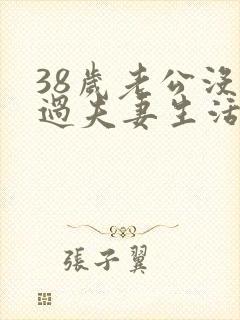 38歲老公沒
過夫妻生活
張子翼